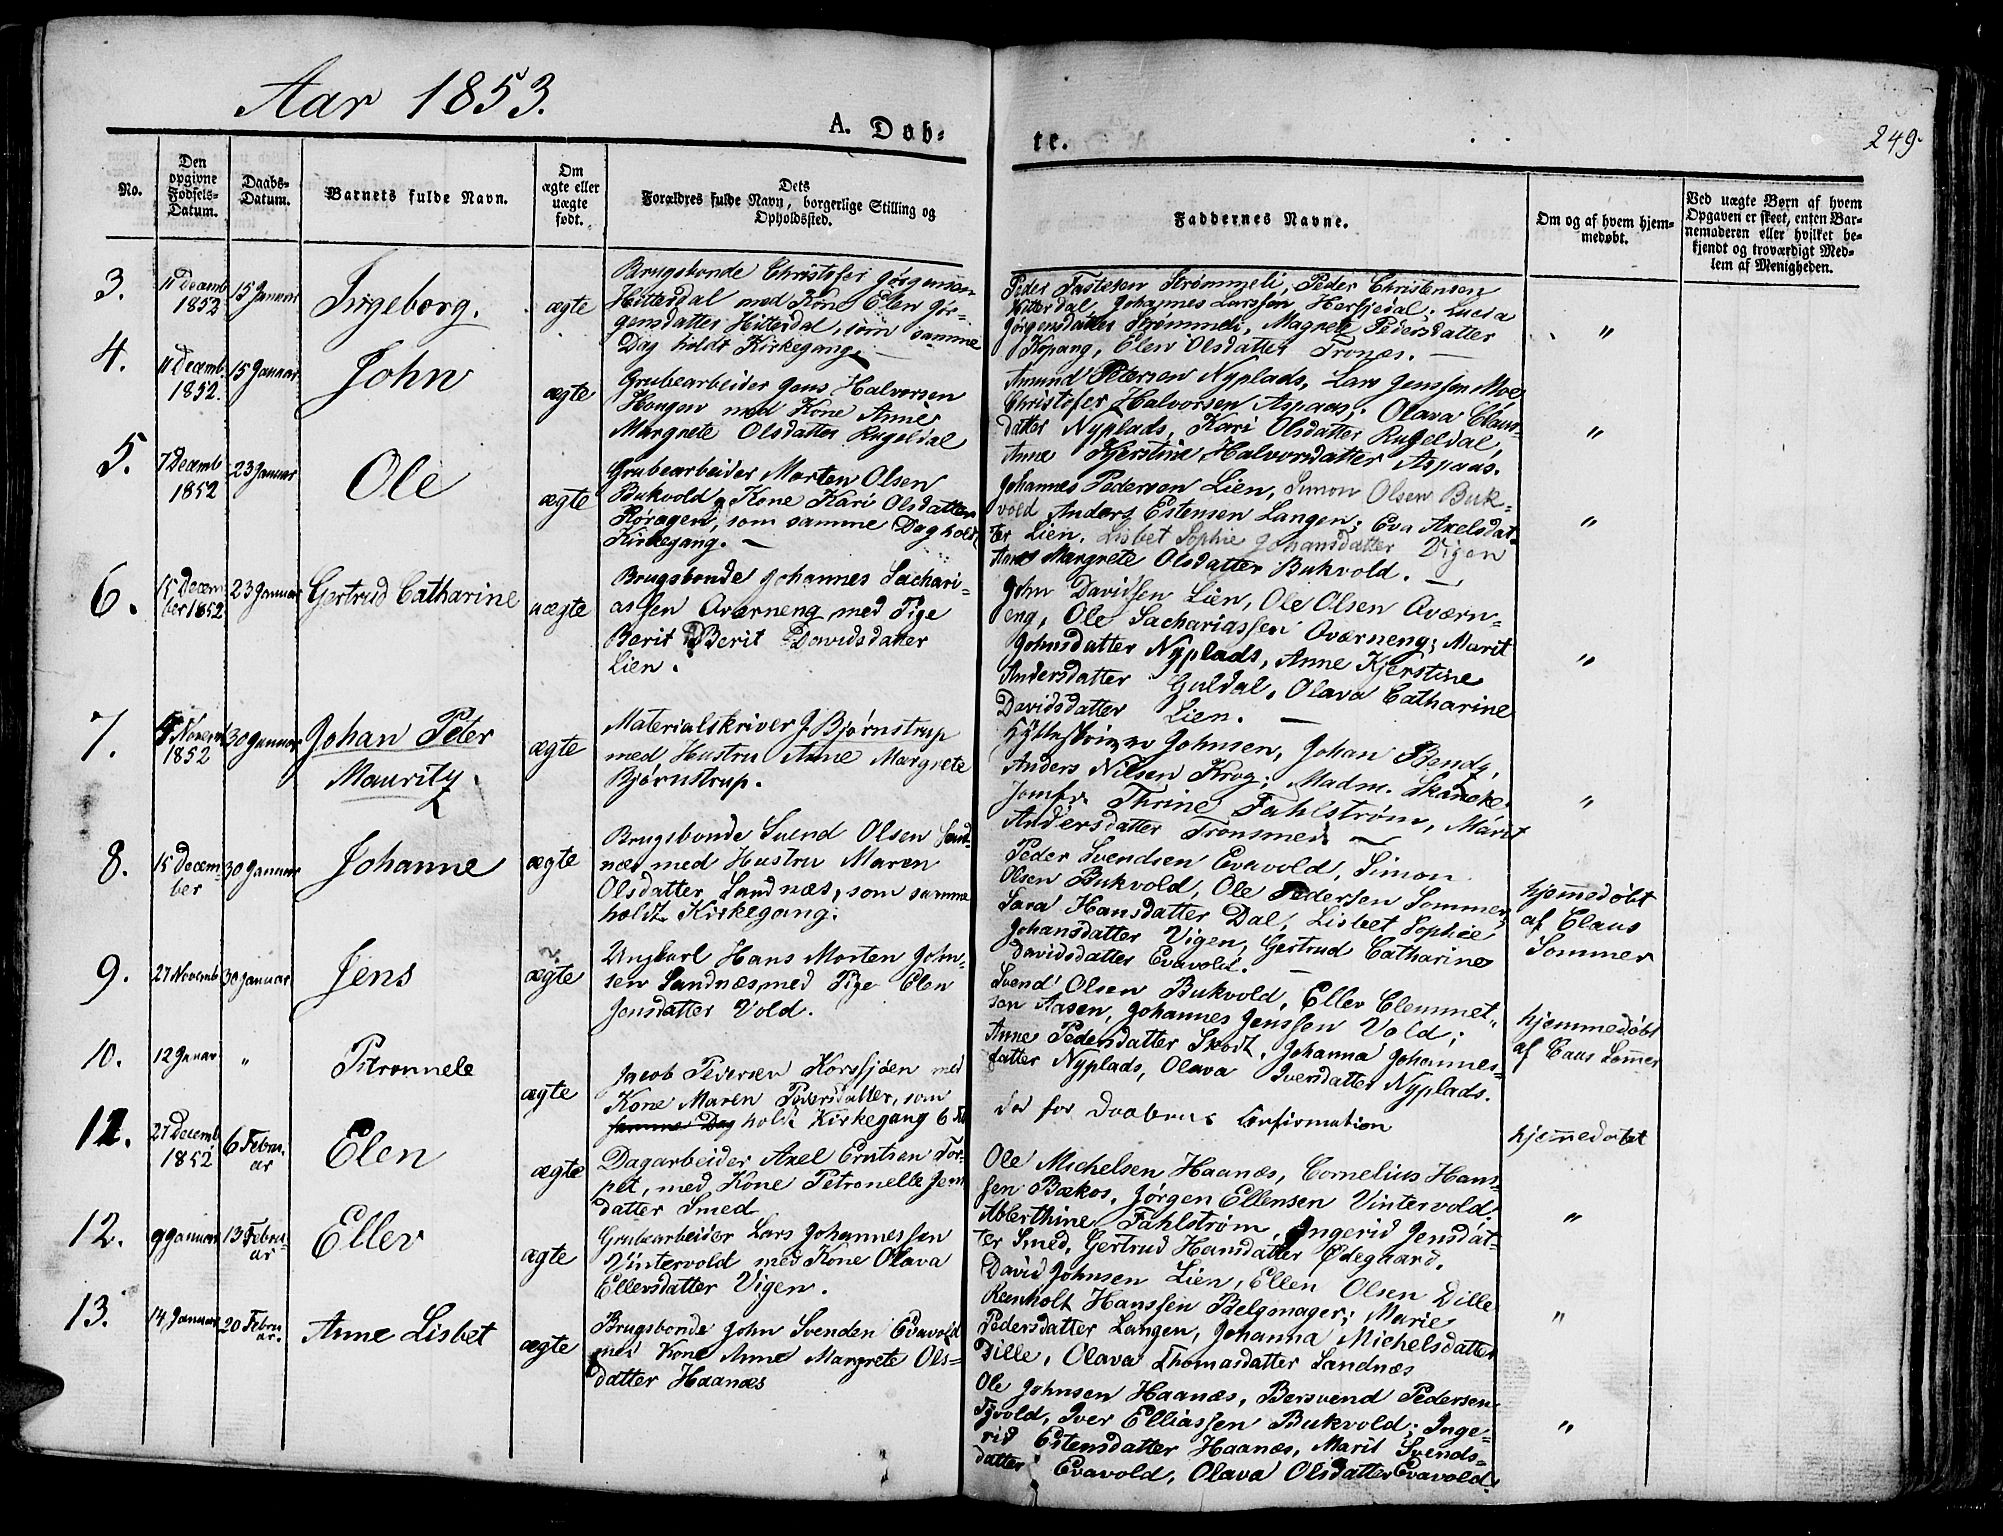 Aar 1853.
A. Døb-
te.
249.
No.
Den opgivne Fødsels-Datum.
Daabs-Datum.
Barnets fulde Navn.
Om ægte eller uægte født.
Dets Forældres fulde Navn, borgerlige Stilling og Opholdssted.
Faddernes Navne.
Om og af hvem hjemmedøbt.
Ved uægte Børn af hvem Opgaven er skeet, enten Barnemoderen eller hvilket bekjendt og troværdigt Medlem af Menigheden.
3.
11 Decemb
1852
15 Januar
Ingeborg.
ægte
Brugsbonde Christofer Jørgensen
Hitterdal med Kone Elen Jør-
gensdatter Hitterdal, som samme
Dag holdt Kirkegang. —
Peder Tastesen Strømmeli, Peder Christensen
Hitterdal, Johannes Larssen Herfjedal; Lucia
Jørgensdatter Strømmeli, Magnele Pedersdatter
Kopang, Elen Olsdatter Tronæs. —
"
4.
11 Decemb.
1852.
15 Januar
John
ægte
Grubearbeider Jens Halvorsen
Hougen med Kone Anne
Margrete Olsdatter Rugeldal
Amund Petersen Nyplads, Lars Jenssen Moe
Christofer Halvorsen Aspaas; Olava Claus-
datter Nyplads, Kari Olsdatter Rugeldal,
Anne Kjerstine Halvorsdatter Aspaas.
"
5.
7 Decemb
1852
23 Januar
Ole
ægte
Grubearbeider Morten Olsen
Bukvold og Kone Kari Olsdatter
Røragen, som samme Dag holdt
Kirkegang. —
Johannes Pedersen Lien, Simon Olsen Buk-
vold Anders Estensen Langen; Eva Axelsdat-
ter Lien. Lisbet Sophie Johansdatter Vigen
Anne Margrete Olsdatter Bukvold. —
"
6.
15 Decem-
ber 1852
23 Januar
Gertrud Catharine
uægte
Brugsbonde Johannes Sachari-
assen Aværneng med Pige
Berit D Berit Davidsdatter
Lien.
John Davidsen Lien, Ole Olsen Aværn-
eng, Ole Sachariassen Oværneng; Marit
Johnsdatter Nyplads, Anne Kjerstine
Andersdatter Guldal, Olava Catharine
Davidsdatter Lien. —
"
7.
Novemb
1852
30 Januar
Johan Peter
Mauritz.
ægte
Materialskriver J Bjørnstrup
med Hustru Anne Margrete
Bjørnstrup.
Hytteskriver Johnsen, Johan Bendz,
Anders Nilsen Krog; Madm. Skancke
Jomfr. Thrine Fahlstrøm, Marit
Andersdatter Tronsmed. —
"
8.
15 Decem-
ber
30 Januar
Johanne
ægte
Brugsbonde Svend Olsen Sand-
næs med Hustru Maren
Olsdatter Sandnæs, som samme
holdt Kirkegang.
Peder Svendsen Evavold, Simon
Olsen Bukvold, Ole Pedersen Sommer;
Sara Hansdatter Dal, Lisbet Sophie
Johansdatter Vigen, Gertrud Catharine
Davidsdatter Evavold. —
hjemmedøbt
af Claus
Sommer
9.
27 Novemb
30 Januar
Jens
ægte
Ungkarl Hans Morten John-
sen Sandnæs med Pige Elen
Jensdatter Vold.
Svend Olsen Bukvold, Ellev Clemmet-
sen Aasen, Johannes Jenssen Vold;
Anne Pedersdatter Skodt, Johanna Johannes-
datter Nyplads, Olava Iversdatter Nyplads.
hjemmedøbt
af Caus Sommer
10.
12 Januar
"
Petronnele
ægte
Jacob Pedersen Korssjøen med
Kone Maren Pedersdatter, som
samme Dag holdt Kirkegang 6 Feb
død for Daabens Confirmation
hjemmedøbt
11.
27 Decemb
1852
6 Febru-
ar
Elen
ægte
Dagarbeider Axel Erutsen Tor-
pet, med Kone Petronelle Jens
datter Smed
Ole Michelsen Haanæs, Cornelius Hans-
sen Bækos, Jørgen Ellensen Vintervold;
Abberthine Fahlstrøm, Ingerid Jensdat-
ter Smed, Gertrud Hansdatter Ødegaard.
"
12.
9 Januar
13 Febru-
ar
Ellev
ægte
Grubearbeider Lars Johannessen
Vintervold med Kone Olava
Ellersdatter Vigen.
David Johnsen Lien, Ellen Olsen Dille
Reenholt Hanssen Belgmager; Marie
Pedersdatter Langen, Johanna Michelsdatter
Dille, Olava Thomasdatter Sandnæs
"
13.
14 Januar
20 Febru
ar.
Anne Lisbet
ægte
Brugsbonde John Svenden Evavold
med Kone Anne Margrete Ols-
datter Haanæs
Ole Johnsen Haanæs, Bersvend Pedersen
Tyvold, Iver Elliassen Bukvold; Inge-
rid Estensdatter Haanæs, Marit Svends-
datter Evavold, Olava Olsdatter Evavold.
"